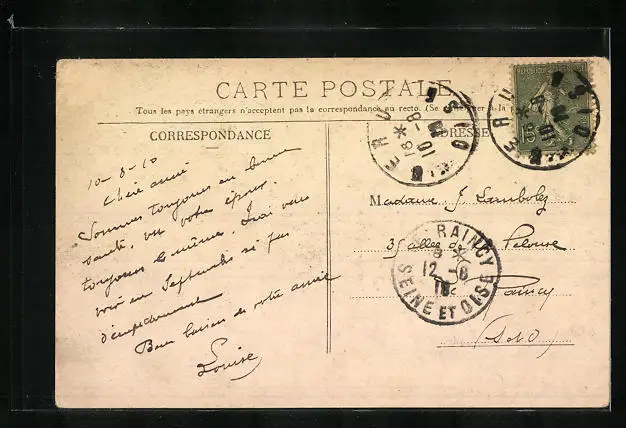 CARTE POSTALE
Tous les pays étrangers n'acceptent pas la correspondance au recto. (Se à la
CORRESPONDANCE
ADRESSE
10-8-10
Chère amie
Sommes toujours en bonne
santé, vu votre époux
toujours le même. Irai vous
voir en Septembre si pas
d'empêchement
Bon baiser de votre amie
Louise
Madame J. Lambolez
35 allée de Pelouse
Raincy
(S et O)
RAINCY
12-8
10
SEINE ET OISE
10-8
10
15